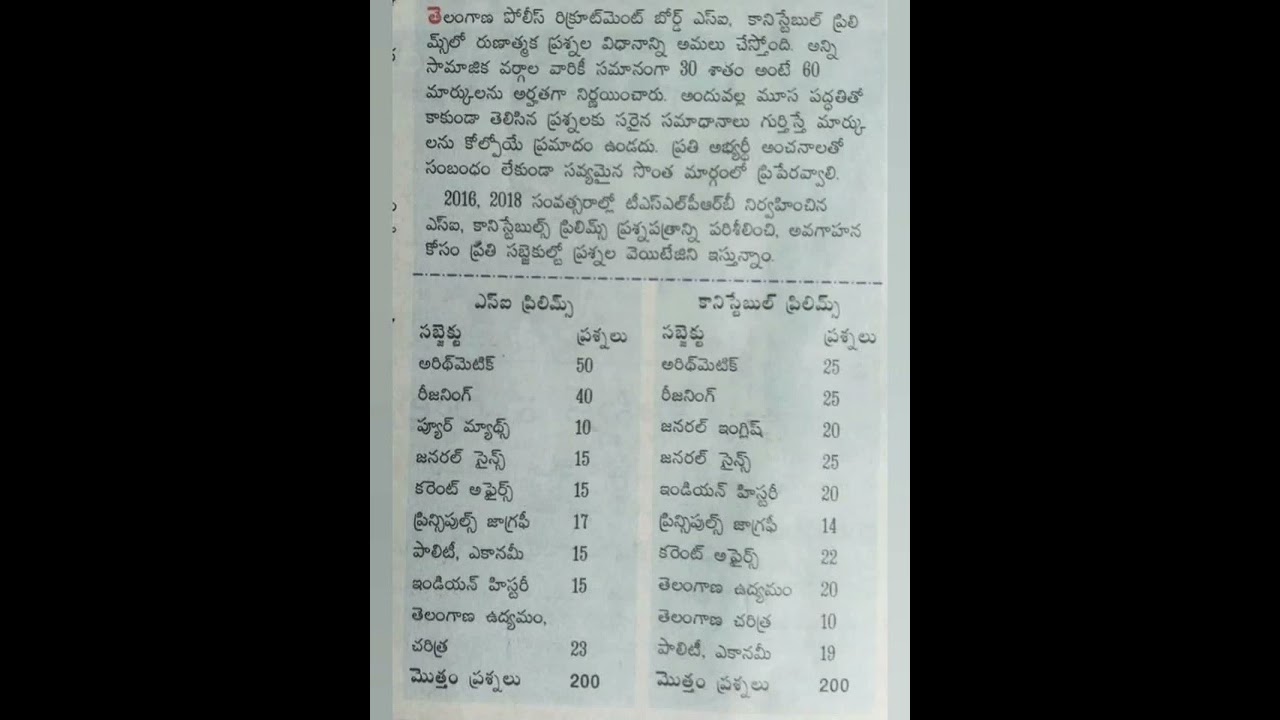 తెలంగాణ పోలీస్ రిక్రూట్‌మెంట్ బోర్డ్ ఎస్ఐ, కానిస్టేబుల్ ప్రిలి
మ్స్‌లో రుణాత్మక ప్రశ్నల విధానాన్ని అమలు చేస్తోంది. అన్ని
సామాజిక వర్గాల వారికీ సమానంగా 30 శాతం అంటే 60
మార్కులను అర్హతగా నిర్ణయించారు. అందువల్ల మూస పద్ధతితో
కాకుండా తెలిసిన ప్రశ్నలకు సరైన సమాధానాలు గుర్తిస్తే మార్కు
లను కోల్పోయే ప్రమాదం ఉండదు. ప్రతి అభ్యర్థీ అంచనాలతో
సంబంధం లేకుండా సవ్యమైన సొంత మార్గంలో ప్రిపేరవ్వాలి.
2016, 2018 సంవత్సరాల్లో టీఎస్ఎల్‌పీఆర్‌బీ నిర్వహించిన
ఎస్ఐ, కానిస్టేబుల్స్ ప్రిలిమ్స్ ప్రశ్నపత్రాన్ని పరిశీలించి, అవగాహన
కోసం ప్రతి సబ్జెకుల్టో ప్రశ్నల వెయిటేజిని ఇస్తున్నాం.
ఎస్ఐ ప్రిలిమ్స్
సబ్జెక్టు ప్రశ్నలు
అరిథ్‌మెటిక్ 50
రీజనింగ్ 40
ప్యూర్ మ్యాథ్స్ 10
జనరల్ సైన్స్ 15
కరెంట్ అఫైర్స్ 15
ప్రిన్సిపుల్స్ జాగ్రఫీ 17
పాలిటీ, ఎకానమీ 15
ఇండియన్ హిస్టరీ 15
తెలంగాణ ఉద్యమం,
చరిత్ర 23
మొత్తం ప్రశ్నలు 200
కానిస్టేబుల్ ప్రిలిమ్స్
సబ్జెక్టు ప్రశ్నలు
అరిథ్‌మెటిక్ 25
రీజనింగ్ 25
జనరల్ ఇంగ్లిష్ 20
జనరల్ సైన్స్ 25
ఇండియన్ హిస్టరీ 20
ప్రిన్సిపుల్స్ జాగ్రఫీ 14
కరెంట్ అఫైర్స్ 22
తెలంగాణ ఉద్యమం 20
తెలంగాణ చరిత్ర 10
పాలిటీ, ఎకానమీ 19
మొత్తం ప్రశ్నలు 200